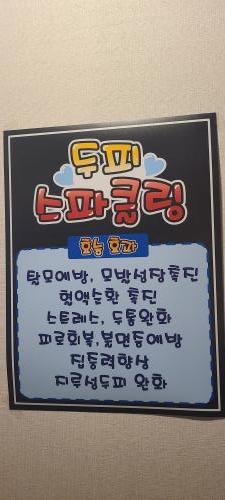 두피
스파클링
효능 효과
탈모예방, 모발성장촉진
혈액순환 촉진
스트레스, 두통완화
피로회복,불면증예방
집중력향상
지루성두피 완화